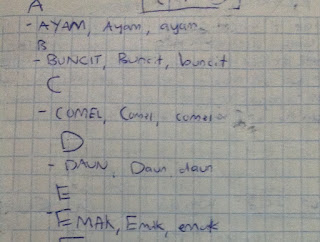 A
- AYAM, Ayam, ayam
B
- BUNCIT, Buncit, buncit
C
- COMEL, Comel, comel
D
- DAUN, Daun, daun
E
- EMAK, Emak, emak